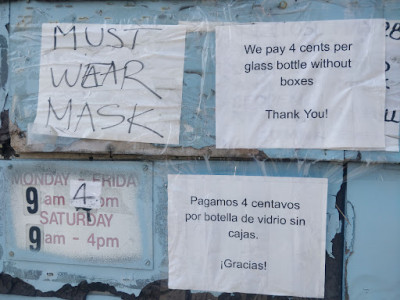 MUST
WEAR
MASK
We pay 4 cents per
glass bottle without
boxes
Thank You!
MONDAY - FRIDAY
9 am - 4 pm
SATURDAY
9am - 4pm
Pagamos 4 centavos
por botella de vidrio sin
cajas.
¡Gracias!